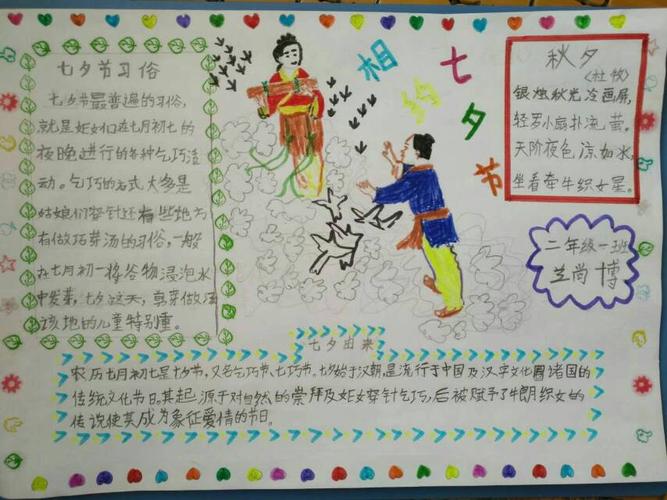 七夕节习俗
七夕节最普遍的习俗,
就是妇女们在七月初七的
夜晚进行的各种乞巧活
动。乞巧的方式大多是
姑娘们穿针还有些地方
有做巧芽汤的习俗,一般
在七月初一将谷物浸泡水
中发芽,七夕这天,剪芽做汤
该地的儿童特别重。
相约七夕节
秋夕
《杜牧》
银烛秋光冷画屏,
轻罗小扇扑流萤。
天阶夜色凉如水,
坐看牵牛织女星。
二年级一班
兰尚博
七夕由来
农历七月初七是七夕节,又名乞巧节、七巧节。七夕始于汉朝是流行于中国及汉字文化圈诸国的
传统文化节日。其起源于对自然的崇拜及妇女穿针乞巧,后被赋予了牛郎织女的
传说使其成为象征爱情的节日。